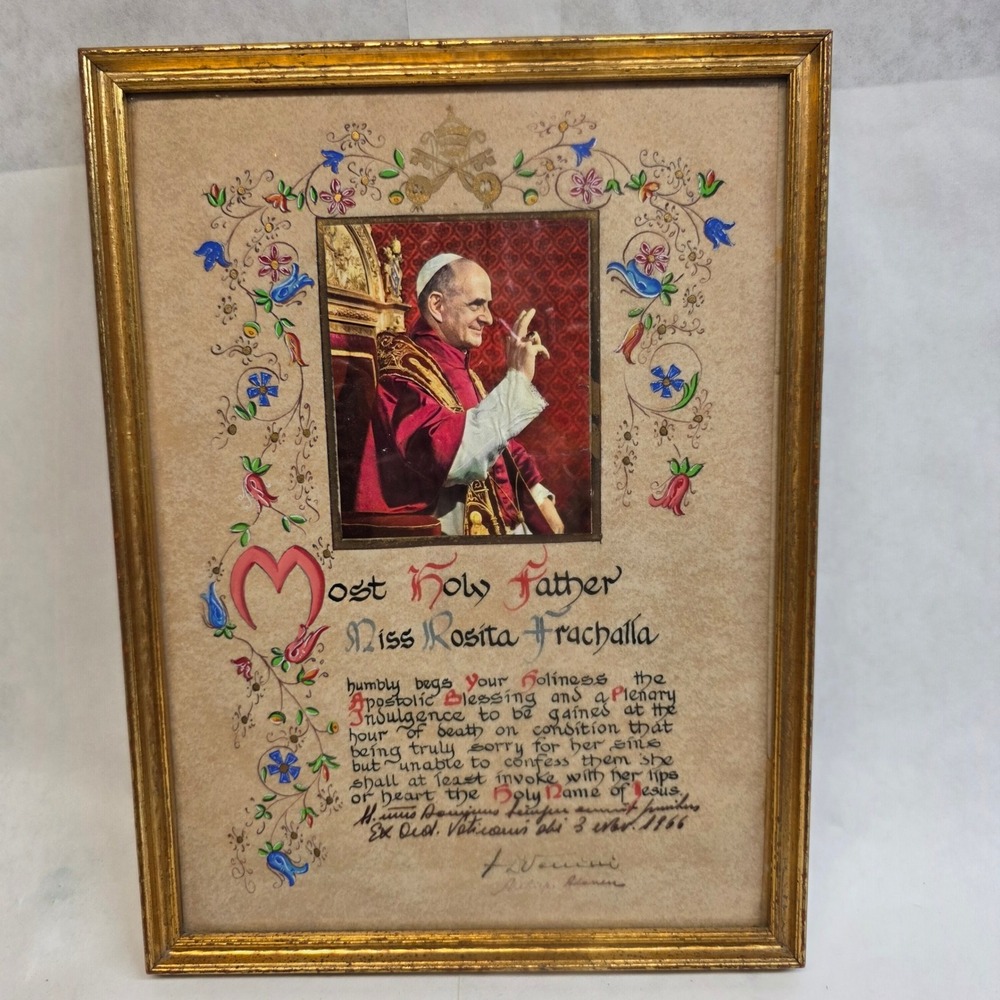 Most Holy Father
Miss Rosita Frachalla
humbly begs Your Holiness the
Apostolic Blessing and a Plenary
Indulgence to be gained at the
hour of death on condition that
being truly sorry for her sins
but unable to confess them she
shall at least invoke with her lips
or heart the Holy Name of Jesus.
annuit precibus
Ex Aed. Vaticanis die 3 1966